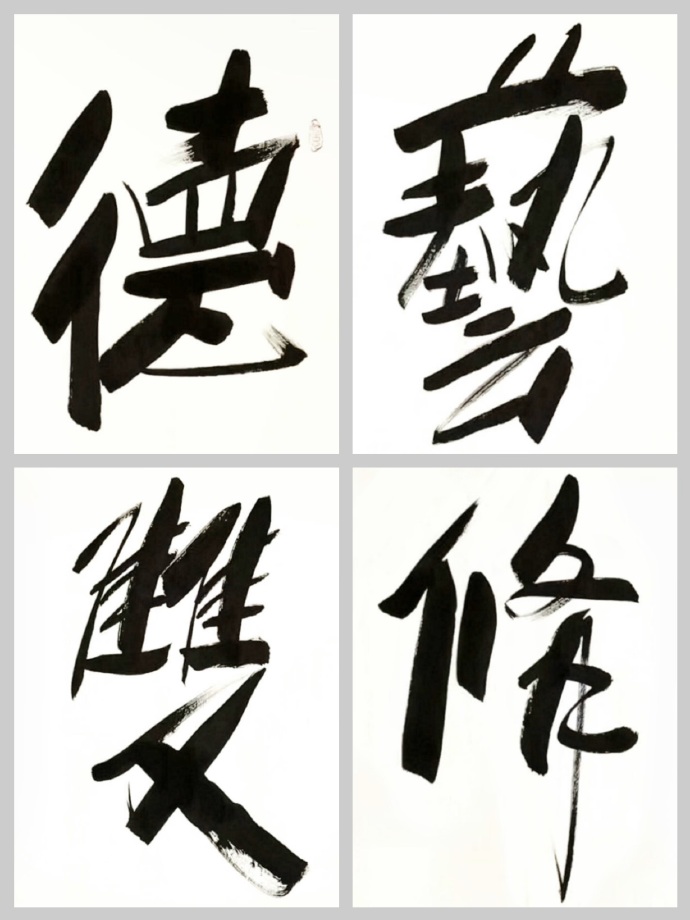 德藝
雙修